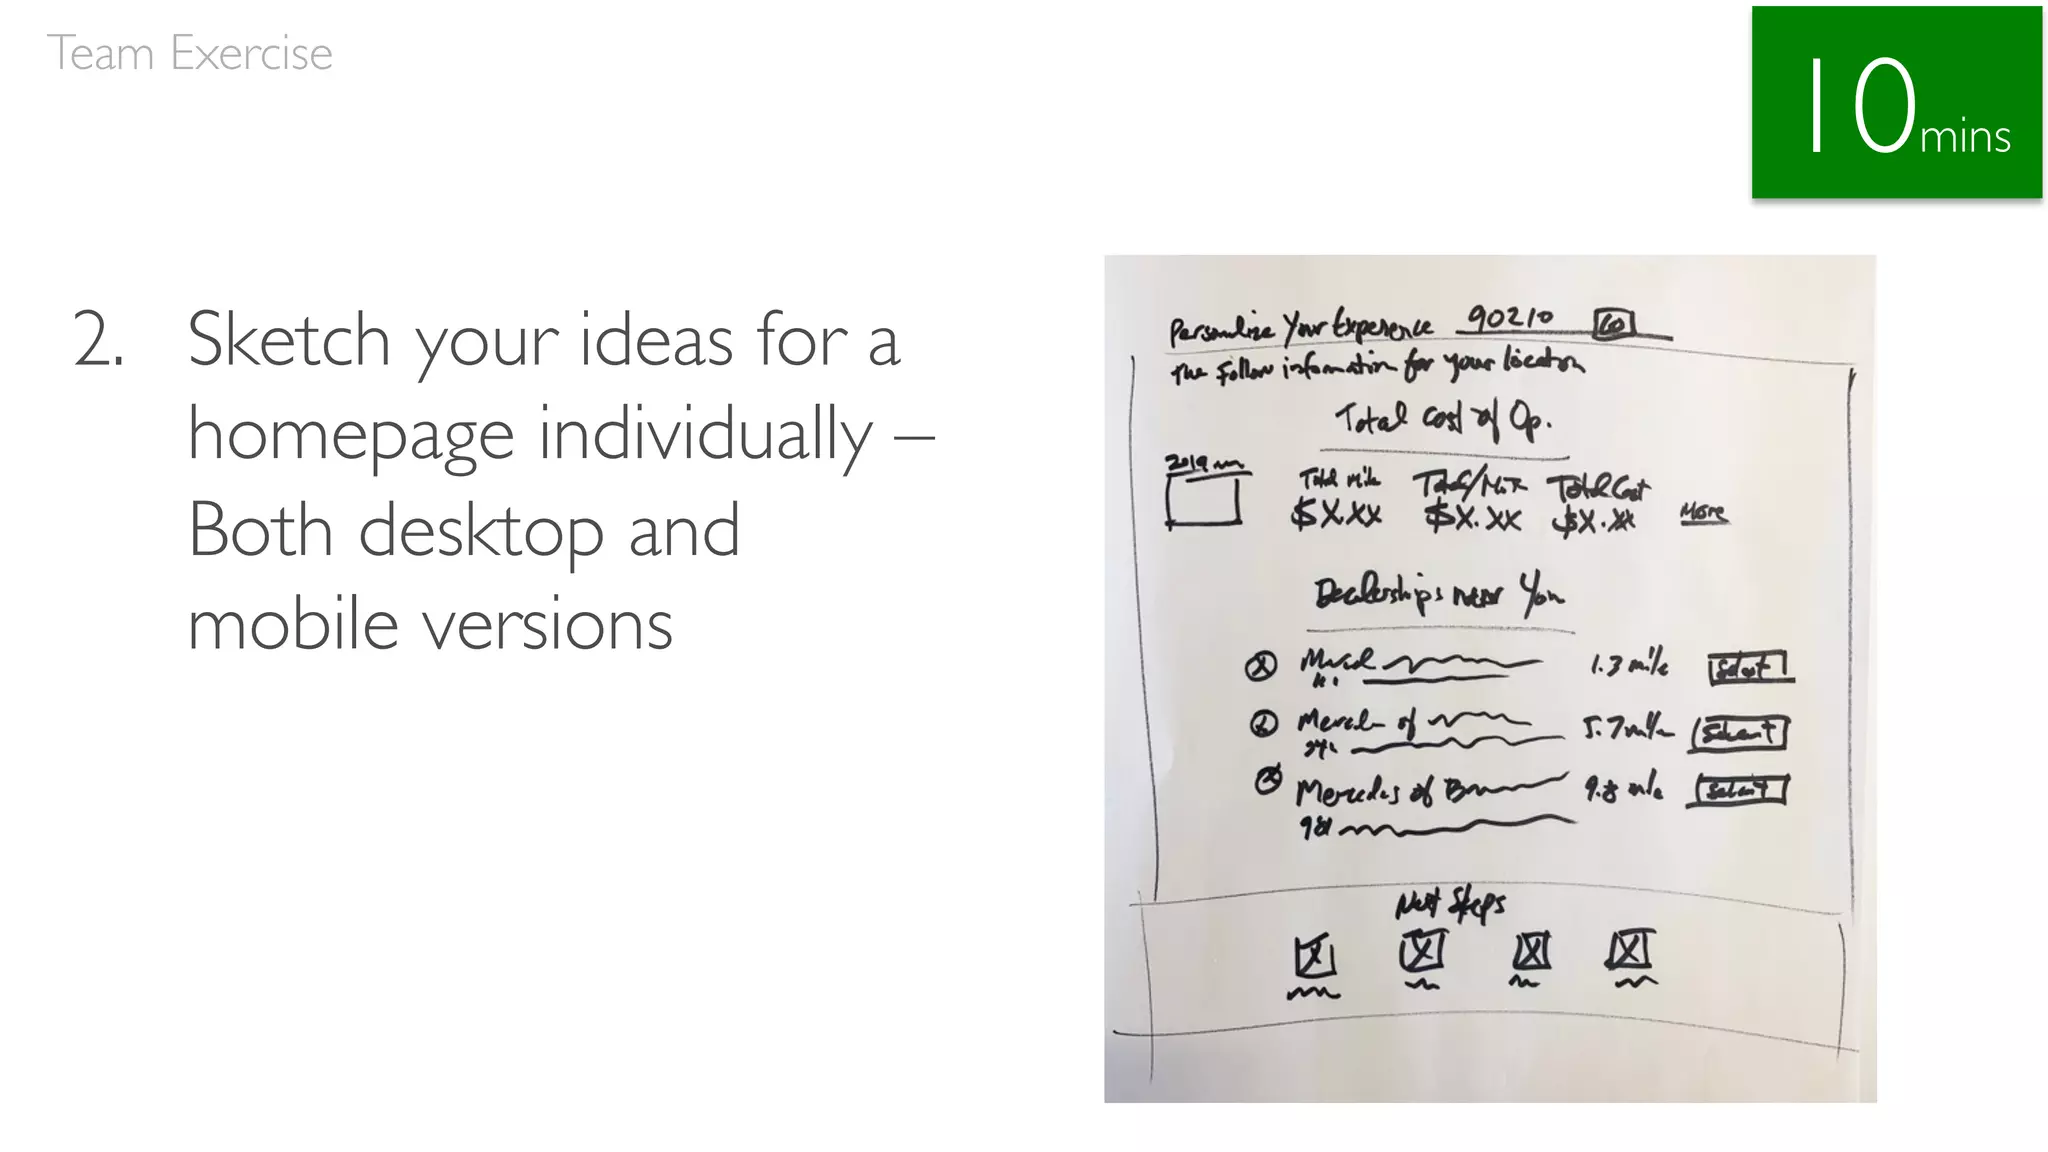 Team Exercise
10mins
2. Sketch your ideas for a
homepage individually –
Both desktop and
mobile versions
Personalize Your Experience 90210 GO
The Follow information for your location
Total Cost of Op.
2019
Total Mile Total/Mo Total Cost
$X.XX $X.XX $X.XX More
Dealerships near You
1.3 mile Select
of 5.7 mile Select
Mercedes of B 9.8 mile Select
981
Next Steps